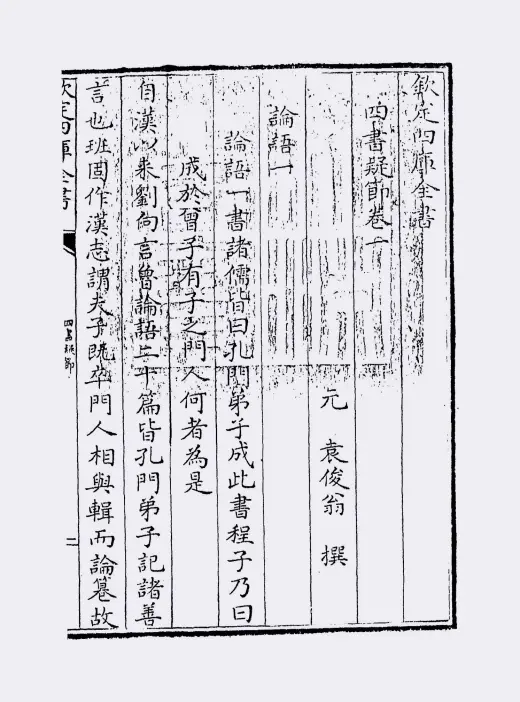 欽定四庫全書
四書疑節卷一
元 袁俊翁 撰
論語一
論語一書諸儒皆曰孔門弟子成此書程子乃曰
成於曾子有子之門人何者為是
自漢以來劉向言魯論語二十篇皆孔門弟子記諸善
言也班固作漢志謂夫子既卒門人相與輯而論篹故
欽定四庫全書
四書疑節
二